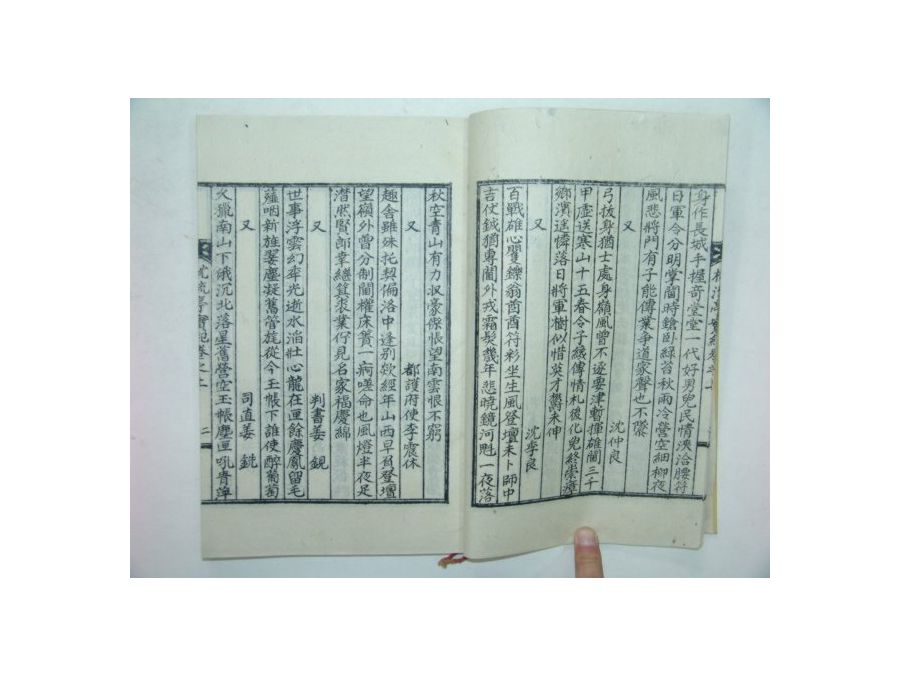 身作長城手握奇堂堂一代好男兒民情浹洽腰符
日軍令分明掌閫時鎗臥綠苔秋雨冷營空細柳夜
風悲將門有子能傳業爭道家聲也不隳
又
沈仲良
弓拔身猶士處身嶺風曾不逐要津暫揮雄閫三千
甲虛送寒山十五春令子纔傳情札後化兒終祟瘴
鄉濱遙憐落日將軍樹似惜英才鬱未伸
又
沈季良
百戰雄心矍鑠翁酋酋符彩坐生風登壇未卜師中
吉仗鉞猶專閫外戎霜髮幾年悲曉鏡河魁一夜落
秋空青山有力収豪傑悵望南雲恨不窮
又
都護府使李震休
趣舍雖殊托契偏洛中逢別欻經年山西早負登壇
望嶺外曾分制閫權床簀一痾嗟命也風燈半夜足
潸然賢郞幸繼箕裘業佇見名家福慶綿
又
判書姜鋧
世事浮雲幻夲光逝水滔壯心龍在匣餘慶鳳留毛
薤咽新旌翣塵凝舊管旄從今玉帳下誰使醉葡萄
又
司直姜銑
久獵南山下俄沉北落星舊營空玉帳塵匣吼青萍
亭實紀卷之上
二